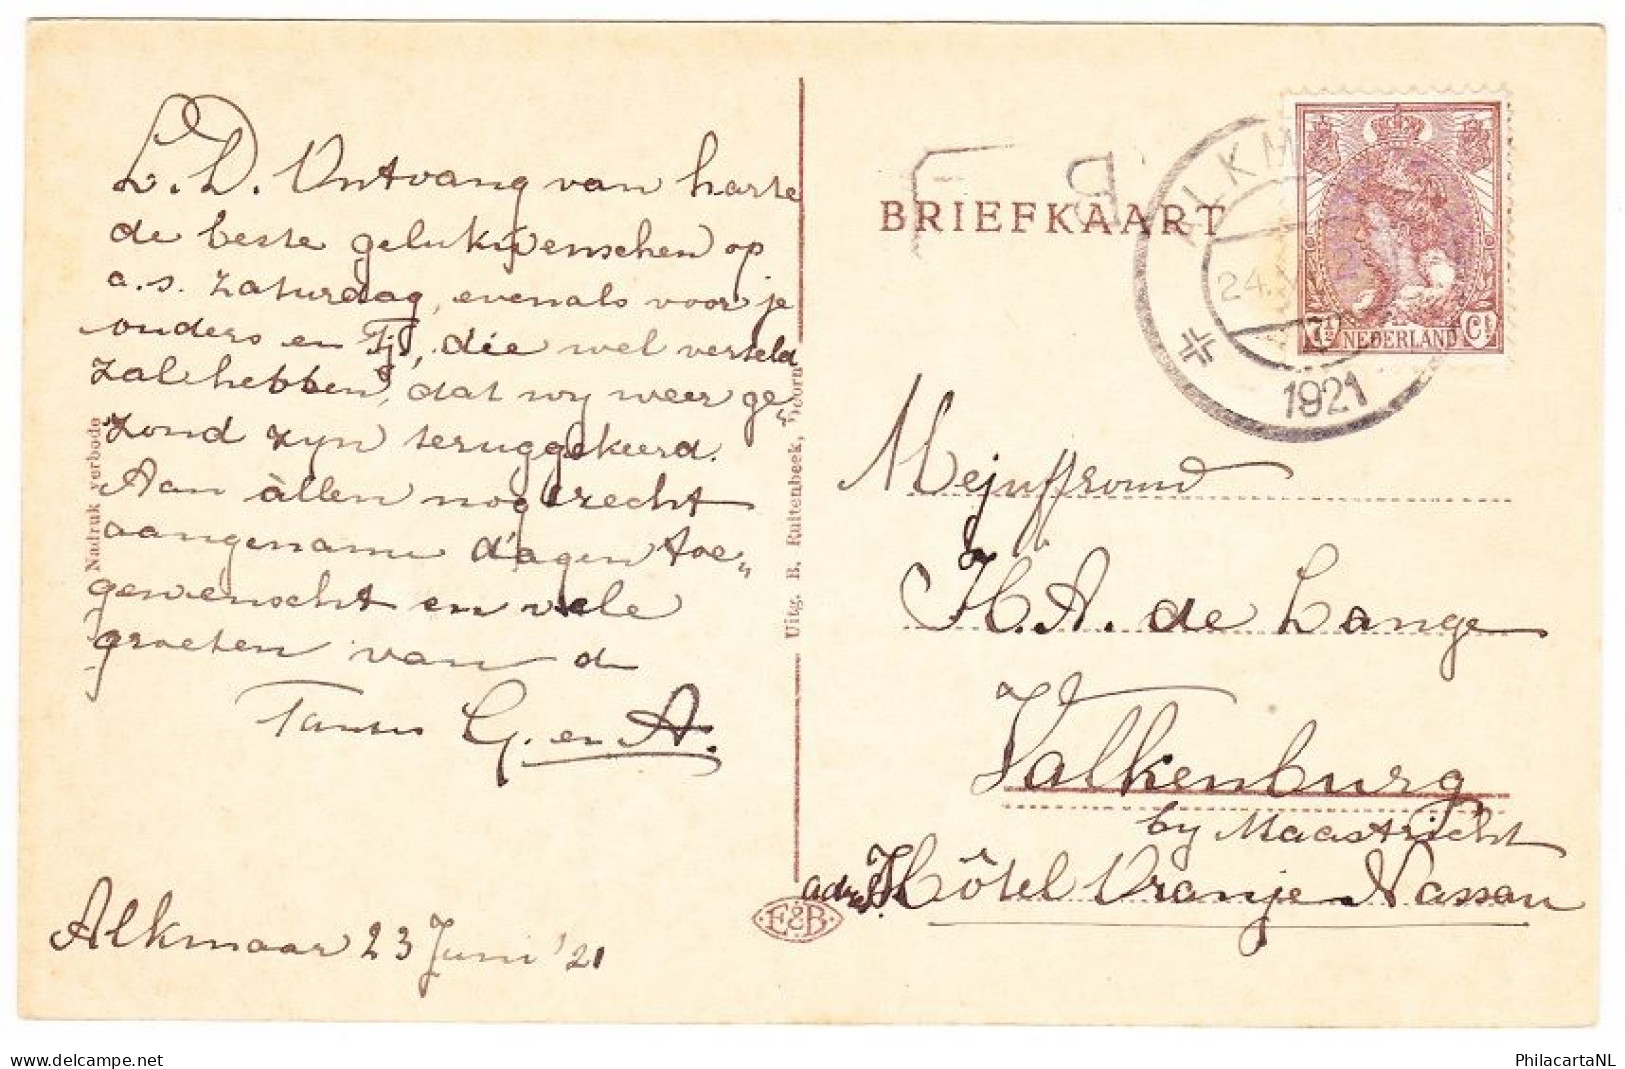 L.D. Ontvang van harte
de beste gelukwenschen op
a.s. Zaturdag, evenals voor je
ouders en Tj, die wel verteld
zal hebben, dat wy weer ge„
zond zyn teruggekeerd.
Aan àllen nog recht
aangename dagen toe„
gewenscht en vele
groeten van d
Tantes G. en A.
Alkmaar 23 Juni '21
Nadruk verboden
Uitg. B. Ruitenbeek, Hoorn
E&B
BRIEFKAART
ALKM
24.
1921
7½ NEDERLAND Ct
Mejuffrouw
H. A. de Lange
Valkenburg
by Maastricht
adres. Hôtel Oranje Nassau
PhilacartaNL